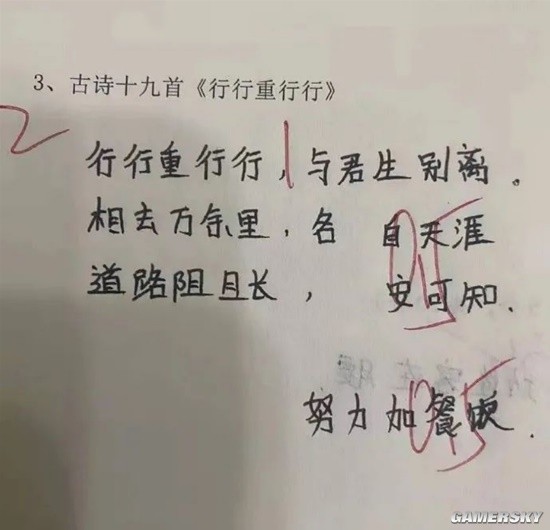 3、古诗十九首《行行重行行》
2
行行重行行，1 与君生别离.
相去万余里，各 自天涯
0.5
道路阻且长， 安可知.
努力加餐饭.
0.5
GAMERSKY